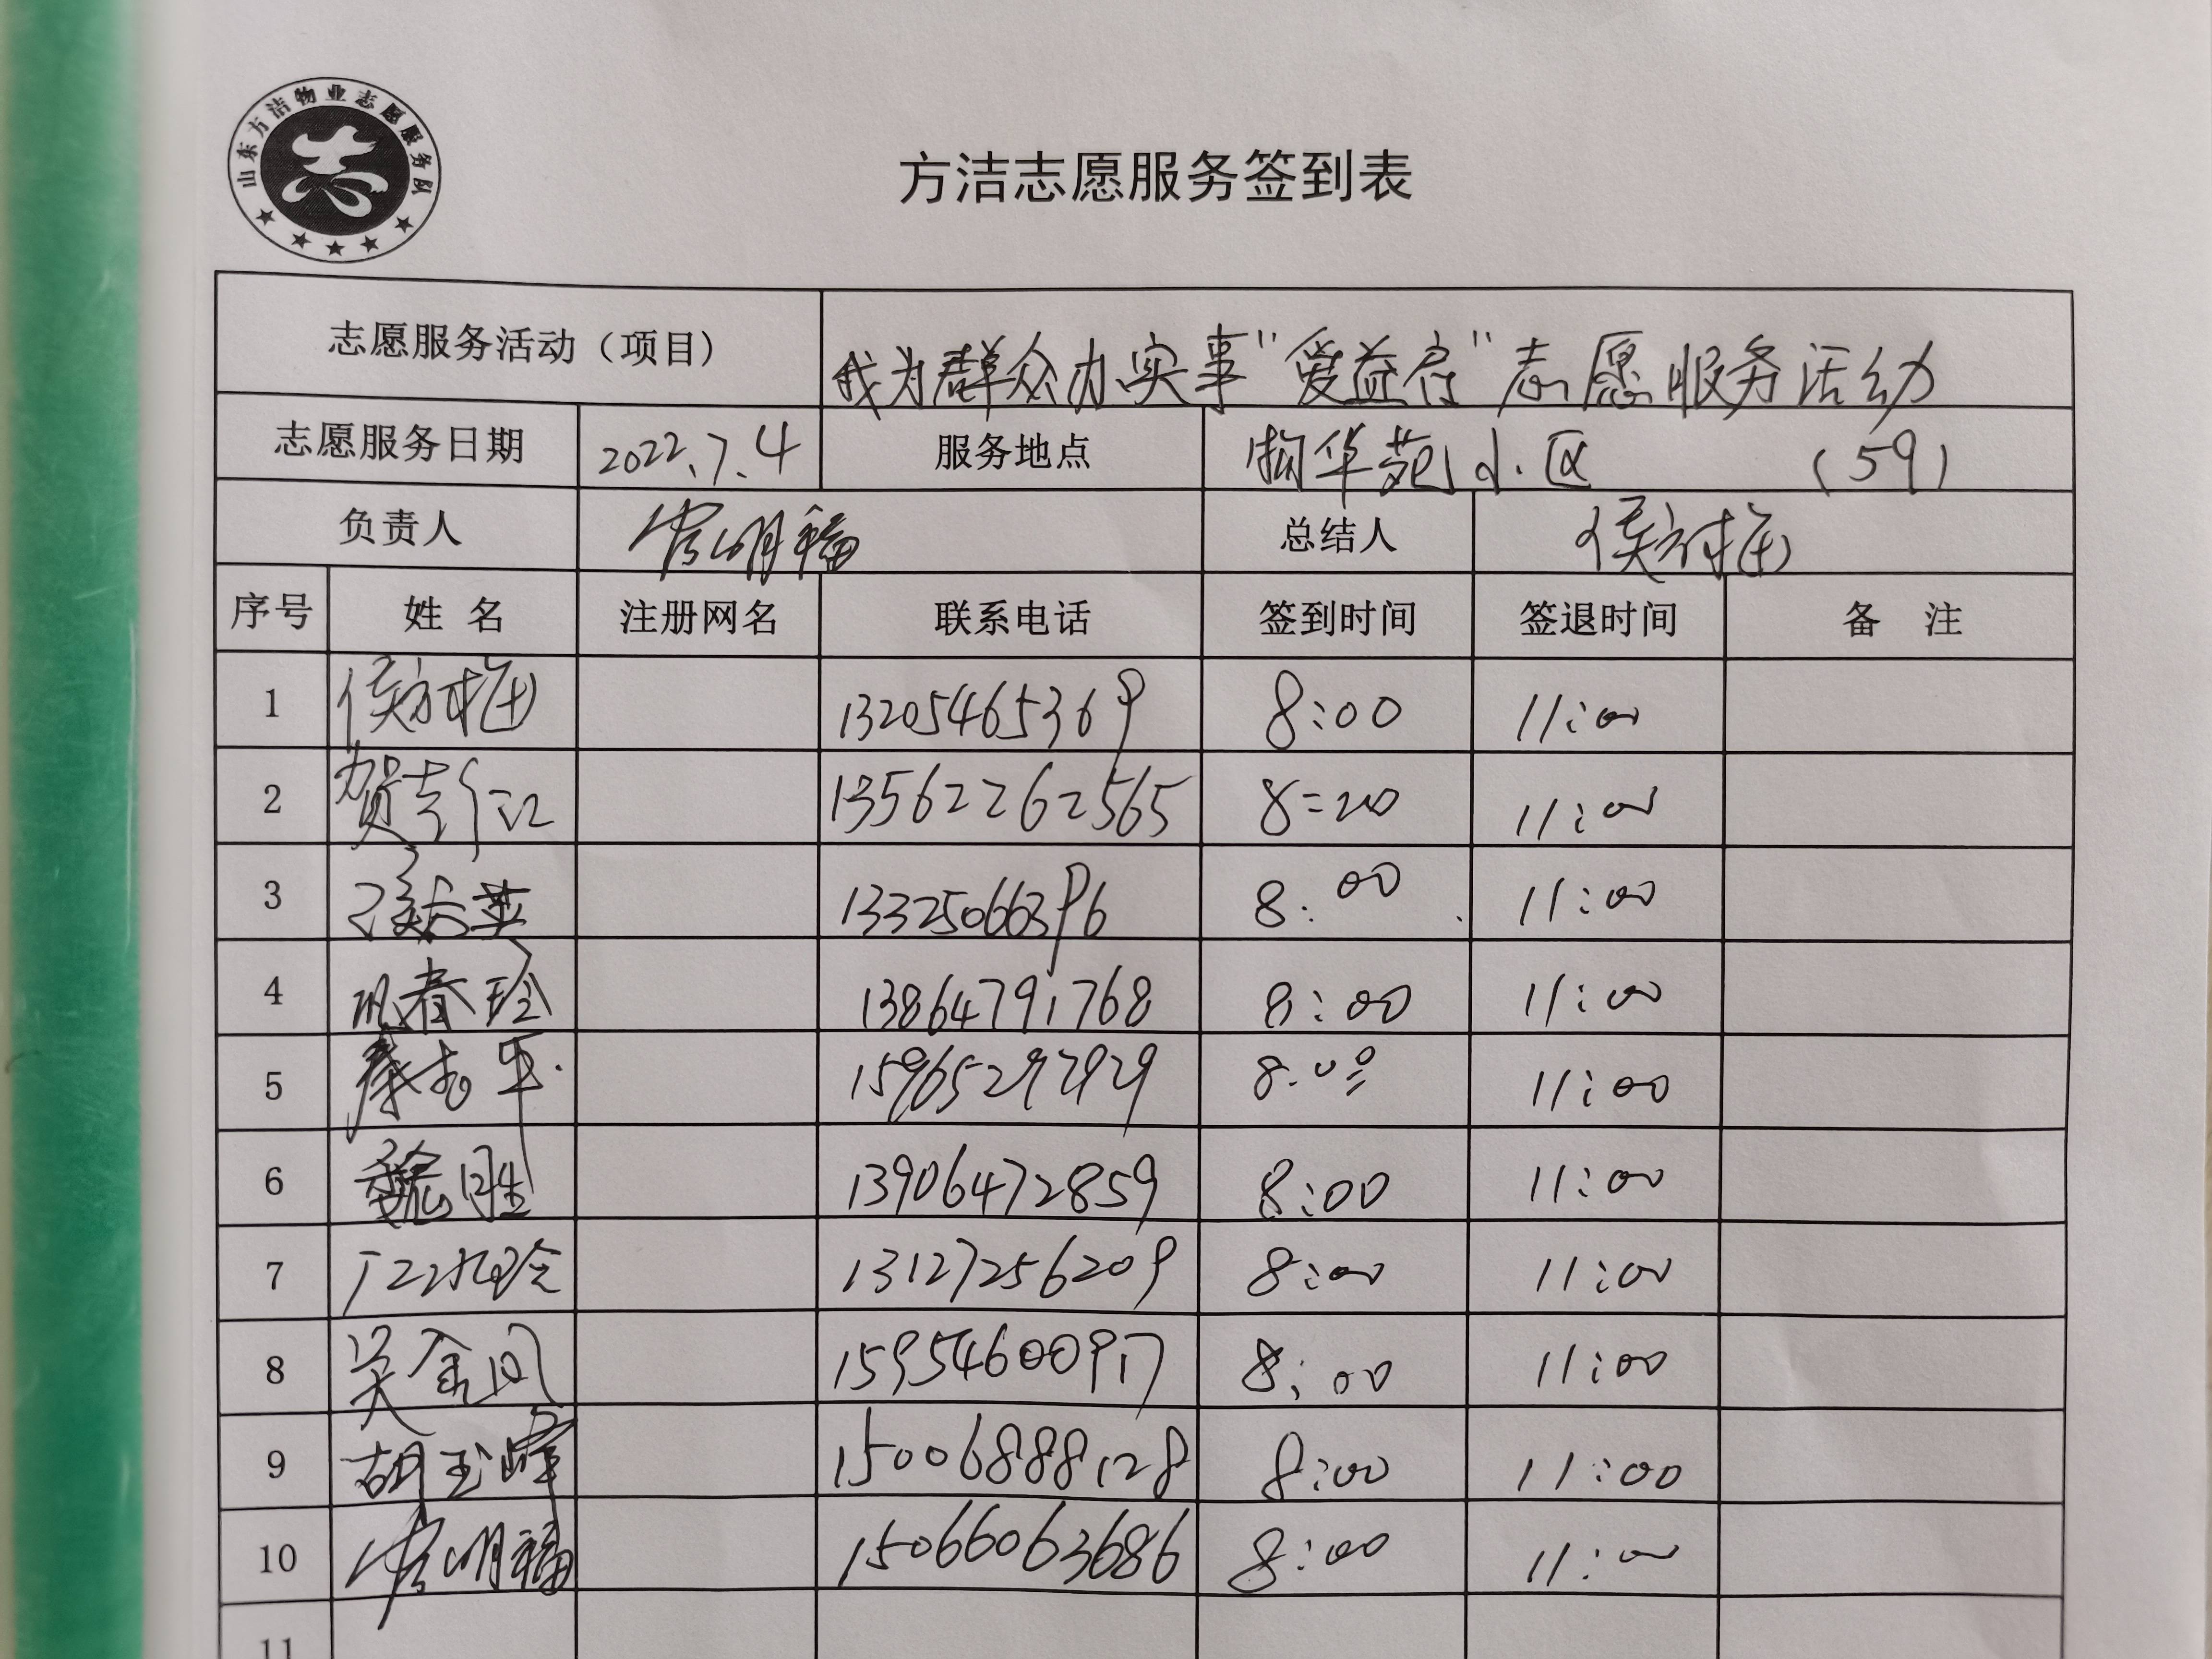 山东方洁物业志愿服务队
志
方洁志愿服务签到表
志愿服务活动（项目） 我为群众办实事"爱益行"志愿服务活动
志愿服务日期 2022.7.4 服务地点 华苑小区 (59)
负责人 明福 总结人 侯
序号 姓名 注册网名 联系电话 签到时间 签退时间 备注
1 侯 13205465369 8:00 11:00
2 贺 13562262565 8:00 11:00
3 13325066396 8:00 11:00
4 巩春玲 13864791768 8:00 11:00
5 秦 15965297929 8:00 11:00
6 魏胜 13906472859 8:00 11:00
7 13127256209 8:00 11:00
8 吴金凤 15954600917 8:00 11:00
9 胡玉峰 15006888128 8:00 11:00
10 明福 15066063686 8:00 11:00
11